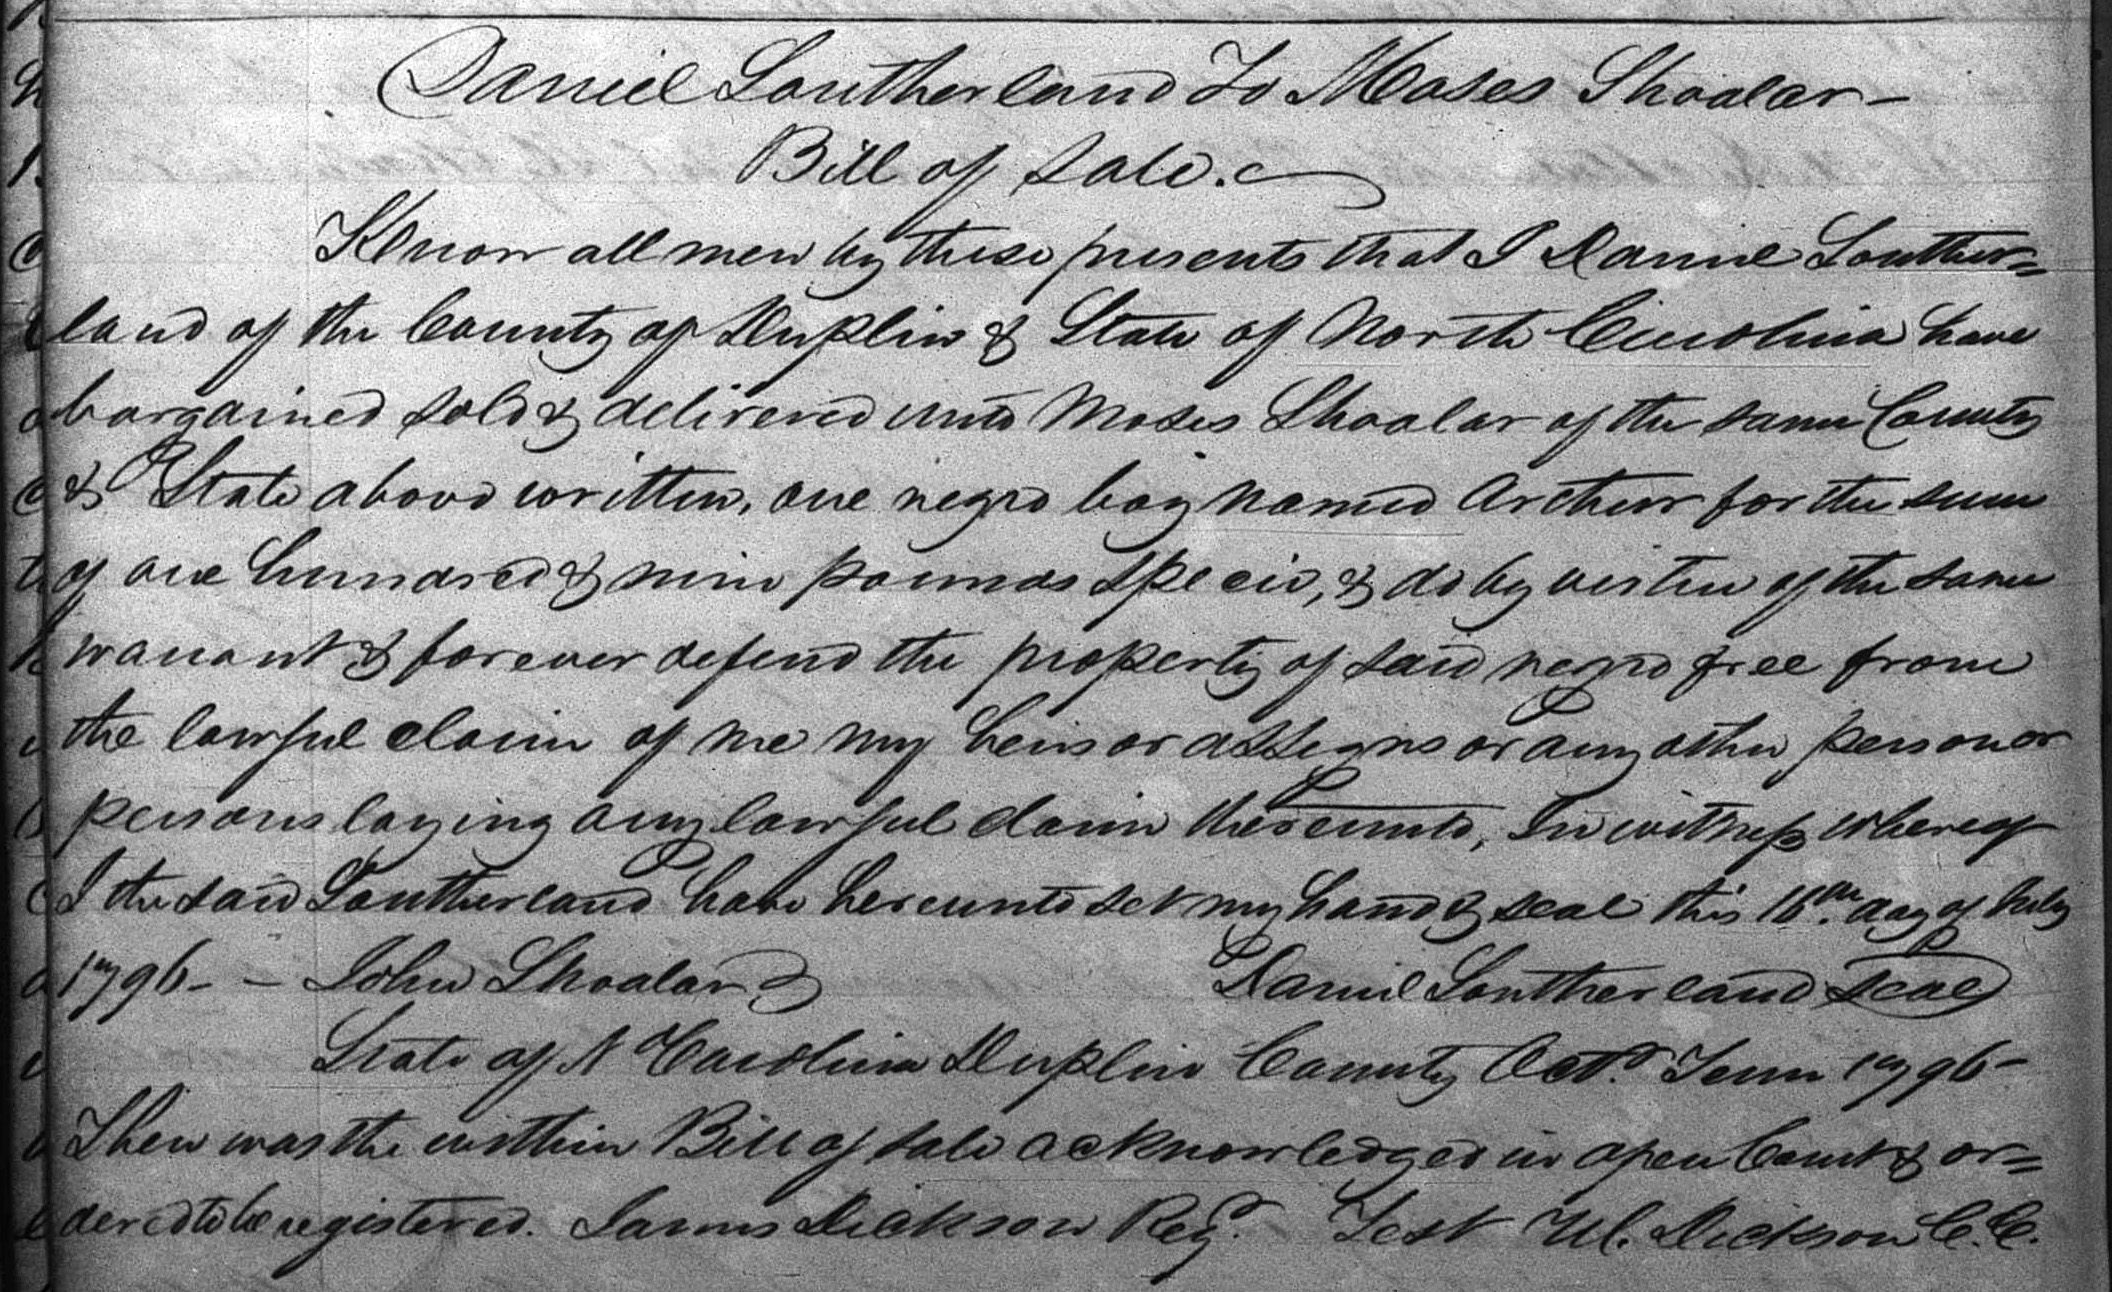 Daniel Southerland To Moses Shoolar -
Bill of Sale.
Know all men by these presents that I Daniel Souther=
land of the County of Duplin & State of North Carolina have
bargained sold & delivered unto Moses Shoolar of the same County
& State above written, one negro boy named Arthur for the sum
of one hundred & nine pounds Specie, & do by virtue of the same
warrant & forever defend the property of said negro free from
the lawful claim of me my heirs or assigns or any other person or
persons laying any lawful claim thereunto, In witness whereof
I the said Southerland have hereunto set my hand & seal this 16th. day of July
1796 - - John Shoolar Daniel Southerland Seal
State of N Carolina Duplin County Octr. Term 1796 -
Then was the within Bill of Sale acknowledged in open Court & or=
dered to be registered. James Dickson Regr. Test W. Dickson C.C.